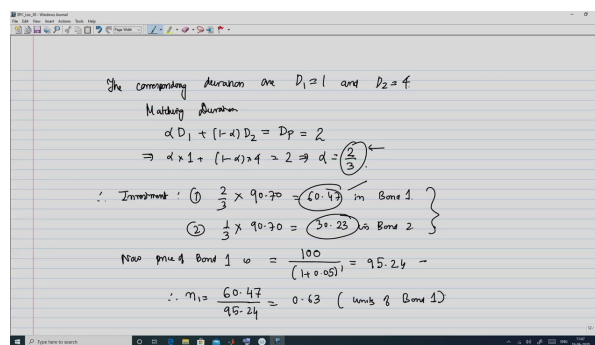 SPC_Lec_35 - Windows Journal
File Edit View Insert Actions Tools Help
Page Width
The corresponding duration are D₁ = 1 and D₂ = 4.
Matching Duration
αD₁ + (1-α) D₂ = Dp = 2
⇒ α × 1 + (1-α) × 4 = 2 ⇒ α = 2/3 ←
∴ Investment : ① 2/3 × 90.70 = 60.47 in Bond 1.
② 1/3 × 90.70 = 30.23 in Bond 2
Now price of Bond 1 is = 100/(1+0.05)¹ = 95.24 -
∴ n₁ = 60.47/95.24 = 0.63 ( units of Bond 1)
Type here to search
ENG